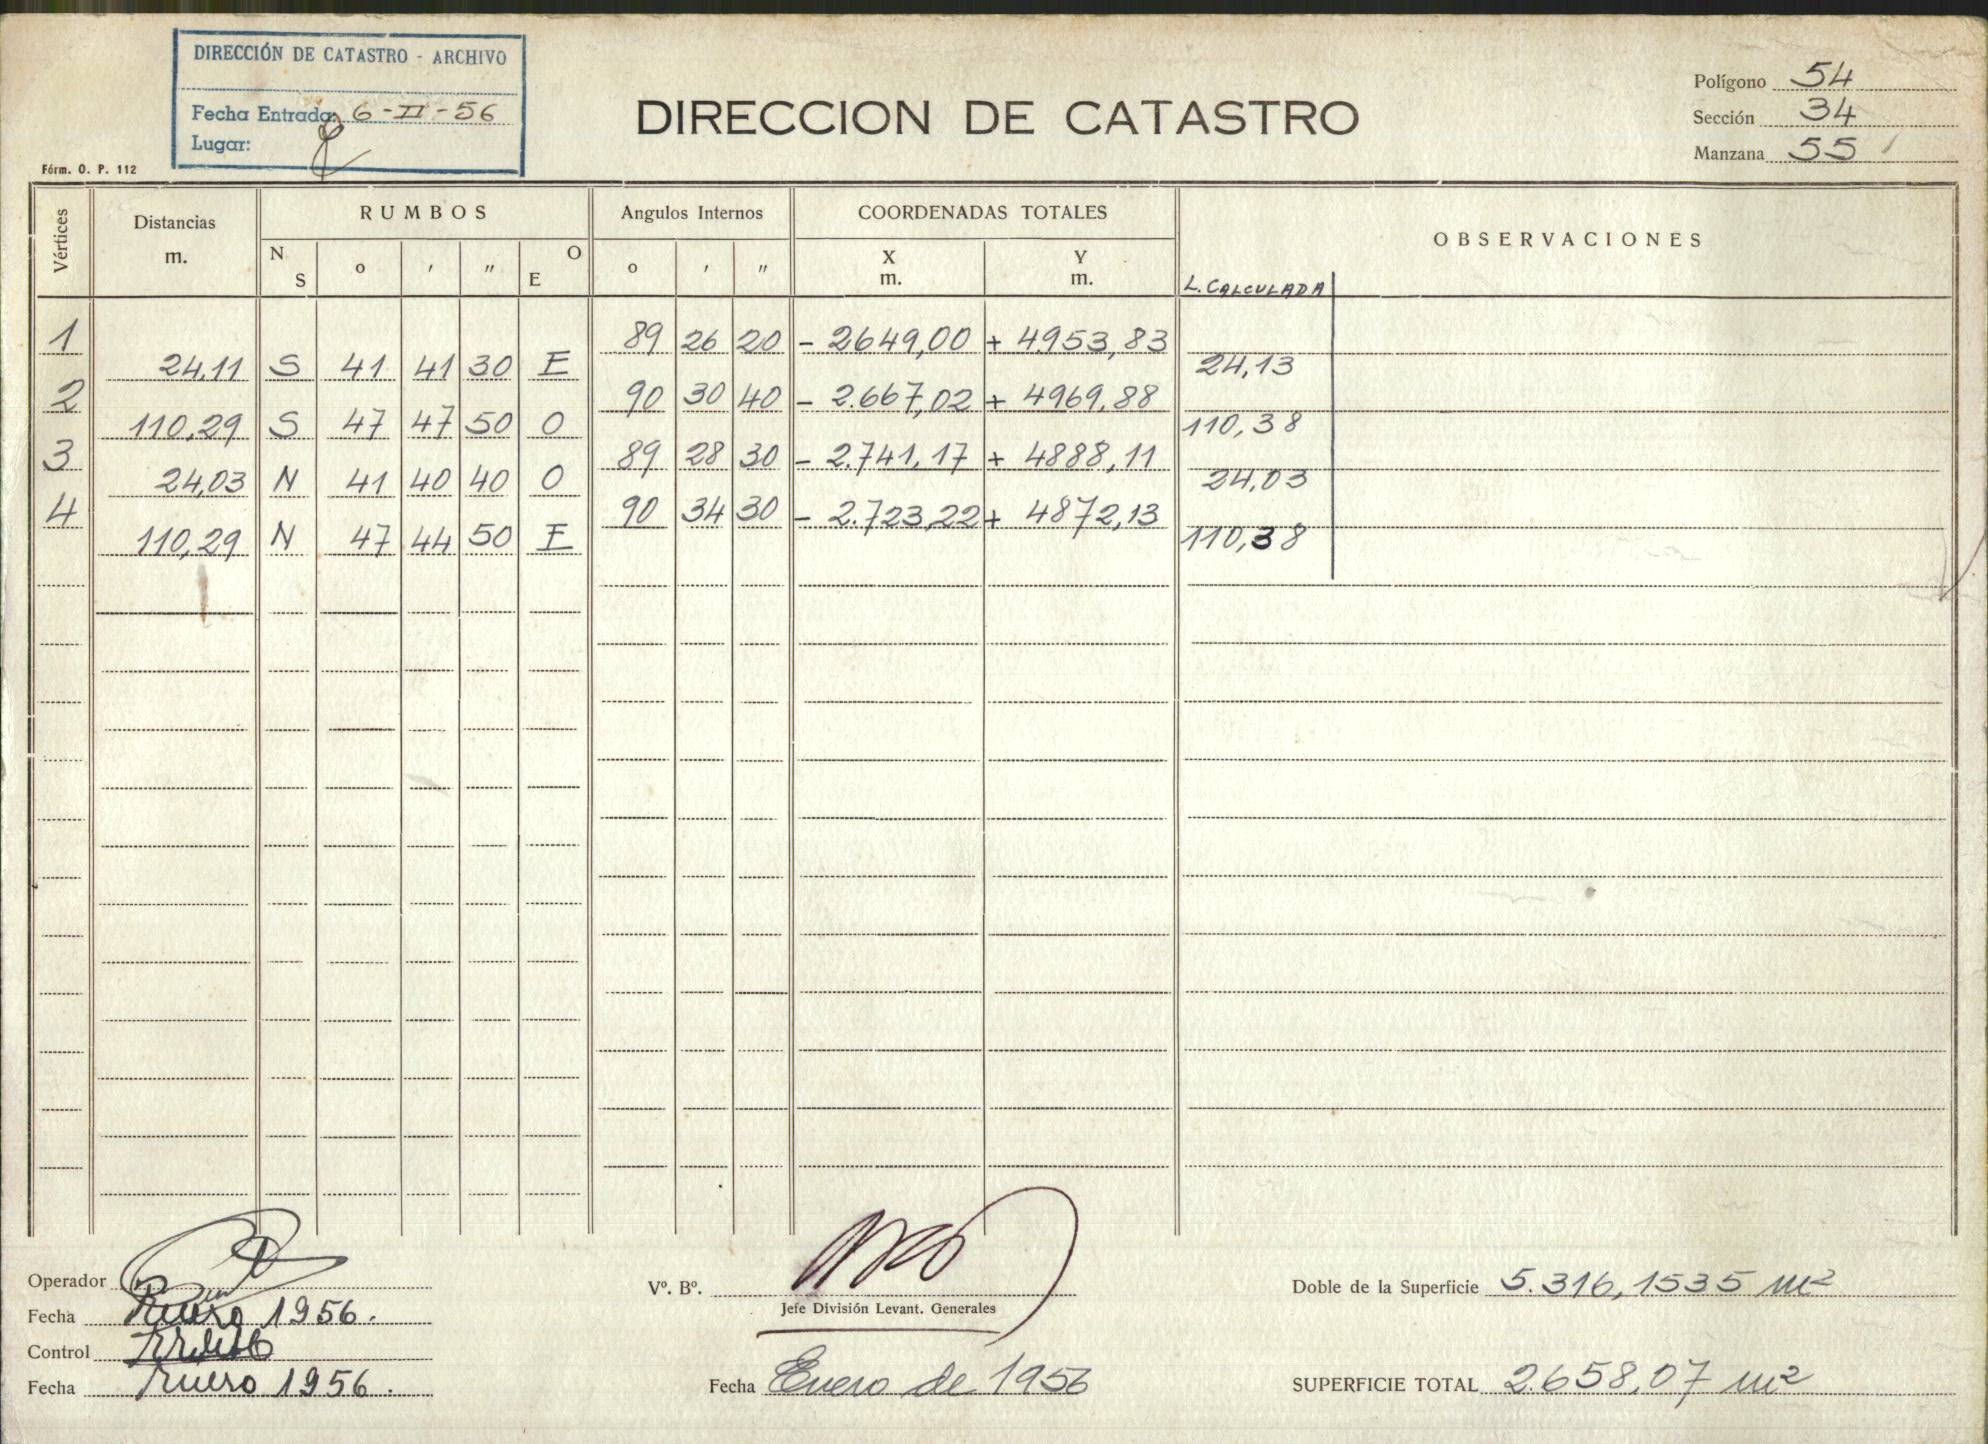 DIRECCIÓN DE CATASTRO - ARCHIVO
Fecha Entrada: 6-II-56
Lugar:
Fórm. O. P. 112
DIRECCION DE CATASTRO
Polígono 54
Sección 34
Manzana 55
Vértices Distancias m. RUMBOS Angulos Internos COORDENADAS TOTALES OBSERVACIONES
N S o ' " O E o ' " X m. Y m. L. CALCULADA
1 89 26 20 - 2649,00 + 4953,83
24,11 S 41 41 30 E 24,13
2 90 30 40 - 2.667,02 + 4969,88
110,29 S 47 47 50 O 110,38
3 89 28 30 - 2.741,17 + 4888,11
24,03 N 41 40 40 O 24,03
4 90 34 30 - 2.723,22 + 4872,13
110,29 N 47 44 50 E 110,38
Operador
Fecha Enero 1956.
Control
Fecha Enero 1956.
Vº. Bº.
Jefe División Levant. Generales
Fecha Enero de 1956
Doble de la Superficie 5.316,1535 m²
SUPERFICIE TOTAL 2.658,07 m²